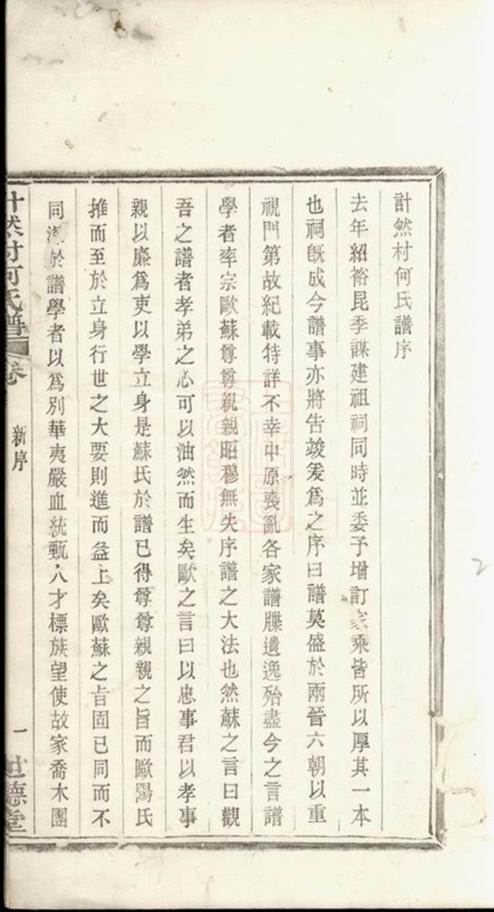 計然村何氏譜序
去年紹裕昆季謀建祖祠同時並委予增訂家乘皆所以厚其一本
也祠既成今譜事亦將告竣爰爲之序曰譜莫盛於兩晉六朝以重
視門第故紀載特詳不幸中原喪亂各家譜牒遺逸殆盡今之言譜
學者率宗歐蘇尊尊親親昭穆無失序譜之大法也然蘇之言曰觀
吾之譜者孝弟之心可以油然而生矣歐之言曰以忠事君以孝事
親以廉爲吏以學立身是蘇氏於譜已得尊尊親親之旨而歐陽氏
推而至於立身行世之大要則進而益上矣歐蘇之旨固已同而不
同深於譜學者以爲別華夷嚴血統甄人才標族望使故家喬木團
計然村何氏譜
卷
新序
一
世德堂